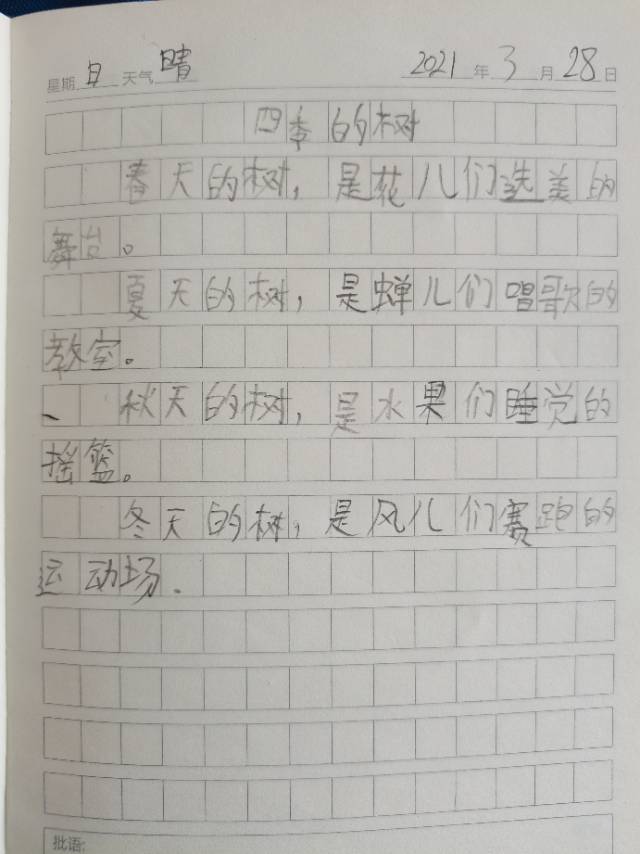 星期 日 天气 晴 2021 年 3 月 28 日
四季的树
春天的树，是花儿们选美的
舞台。
夏天的树，是蝉儿们唱歌的
教室。
秋天的树，是水果们睡觉的
摇篮。
冬天的树，是风儿们赛跑的
运动场.
批语: